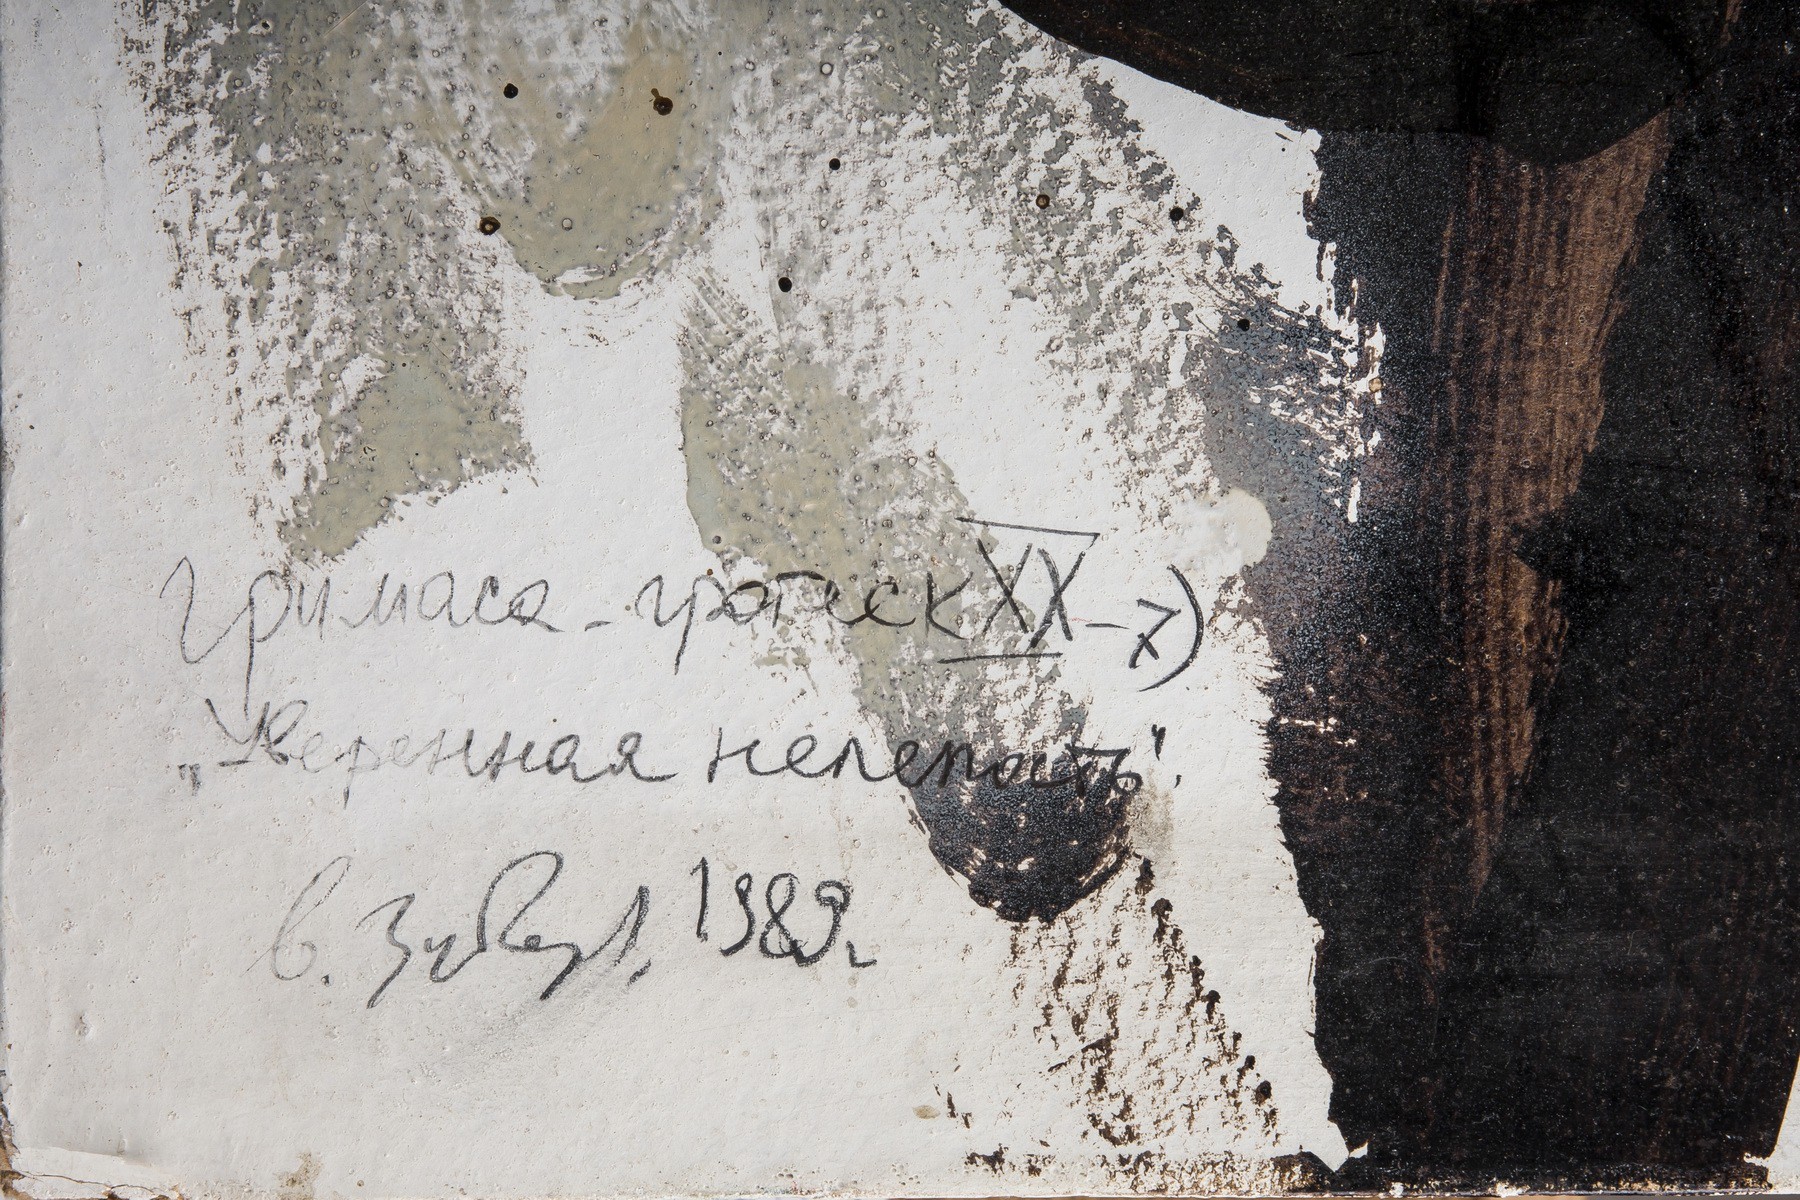 гримаса - гротеск XX - 7)
„Уверенная нелепость".
В. Зубарев, 1989.